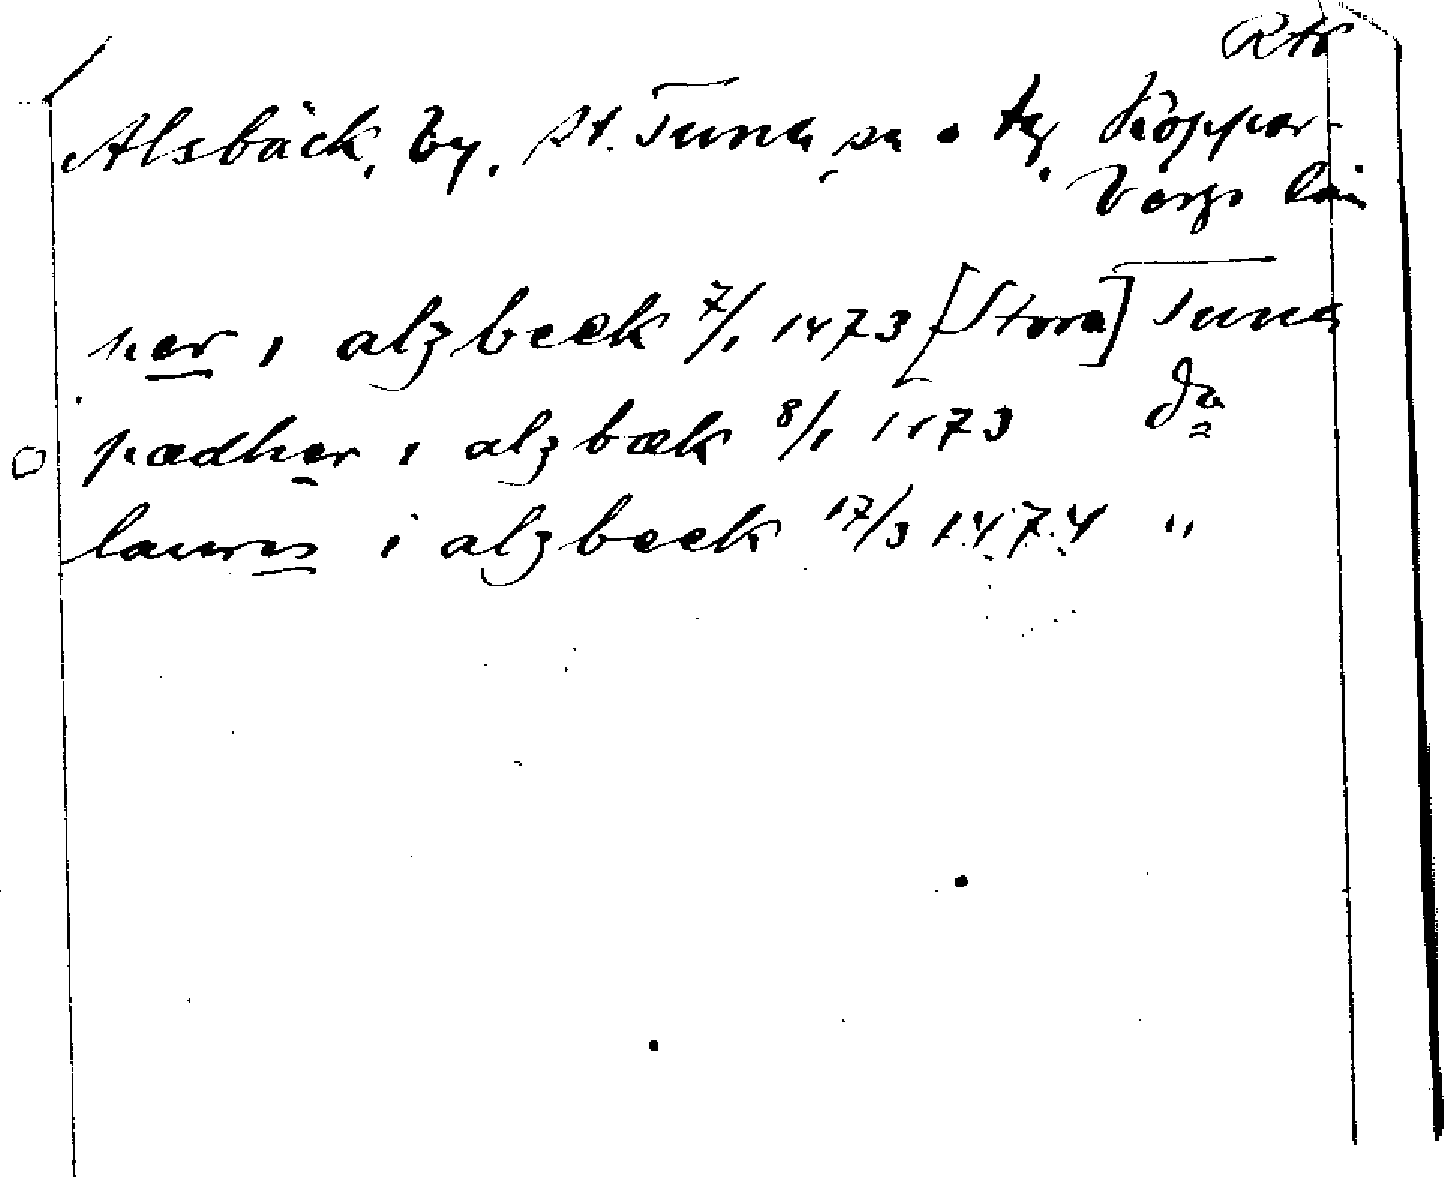 Alsbäck, by, St. Tuna sn o tg Koppar-
bergs län
per i alzbeek 7/1 1473 [Stora] Tuna
pædher i alzbæk 8/1 1473 Do
laurns i alzbeek 17/3 1474 "